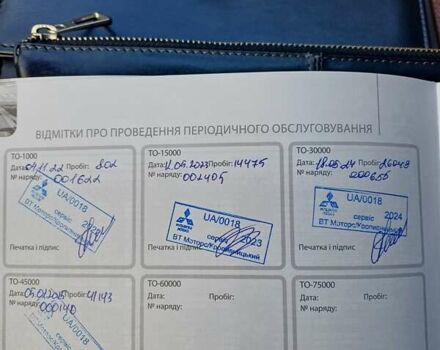 ВІДМІТКИ ПРО ПРОВЕДЕННЯ ПЕРІОДИЧНОГО ОБСЛУГОВУВАННЯ
ТО-1000
Дата: 04.11.22 Пробіг: 802
№ наряду: 001622
UA/0018
сервіс
ВТ Моторс
Печатка і підпис
ТО-15000
Дата: 11.05.2023 Пробіг: 14475
№ наряду: 002405
UA/0018
сервіс 2023
ВТ Моторс/Кропивницький
Печатка і підпис
ТО-30000
Дата: 18.05.24 Пробіг: 26048
№ наряду: 000655
UA/0018
сервіс 2024
ВТ Моторс/Кропивницький
Печатка і підпис
ТО-45000
Дата: 05.01.2025 Пробіг: 41143
№ наряду: 000140
UA/0018
ТО-60000
Дата: Пробіг:
№ наряду:
ТО-75000
Дата: Пробіг:
№ наряду: